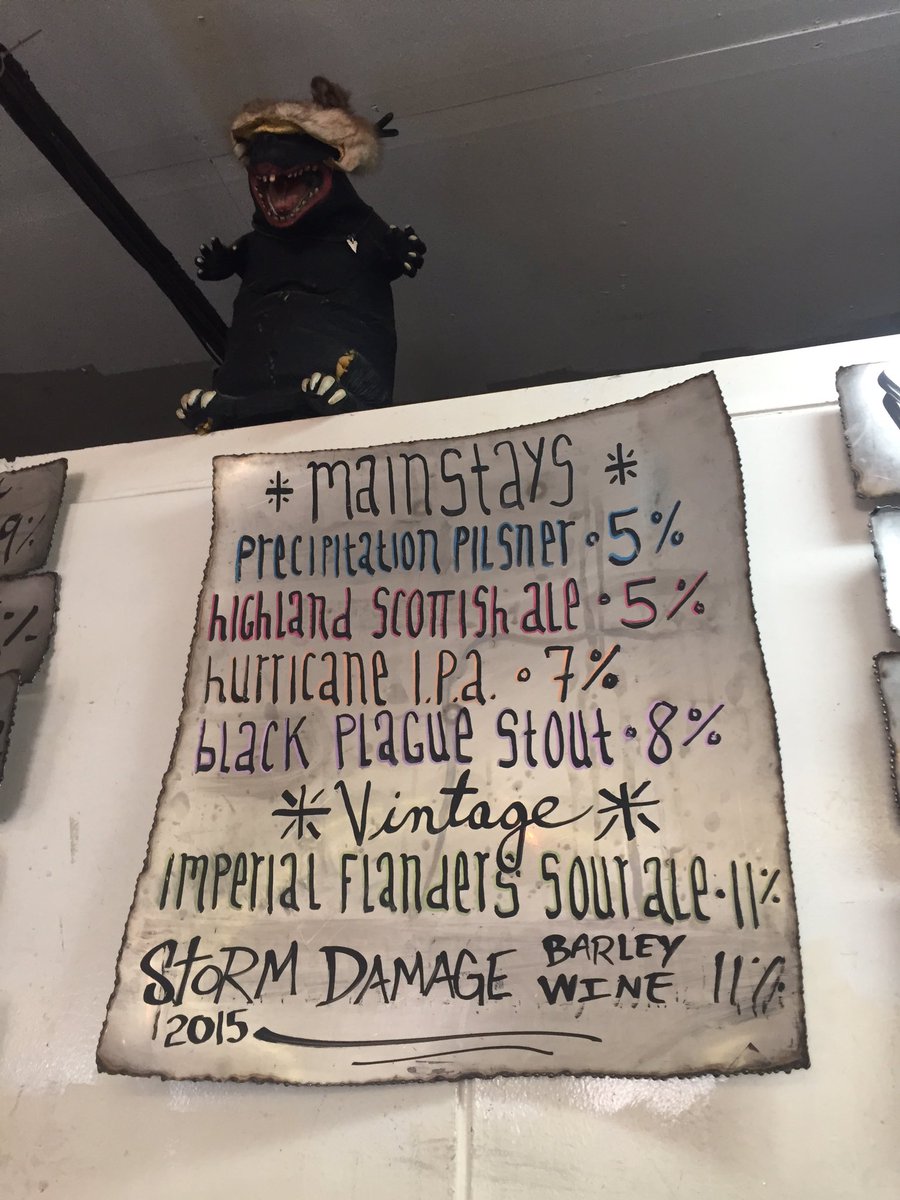 * mainstays *
Precipitation Pilsner • 5%
highland Scottish ale • 5%
hurricane I.P.a. • 7%
black Plague Stout • 8%
* Vintage *
Imperial Flanders Sour ale • 11%
STORM DAMAGE BARLEY WINE 11%
2015
9%
%